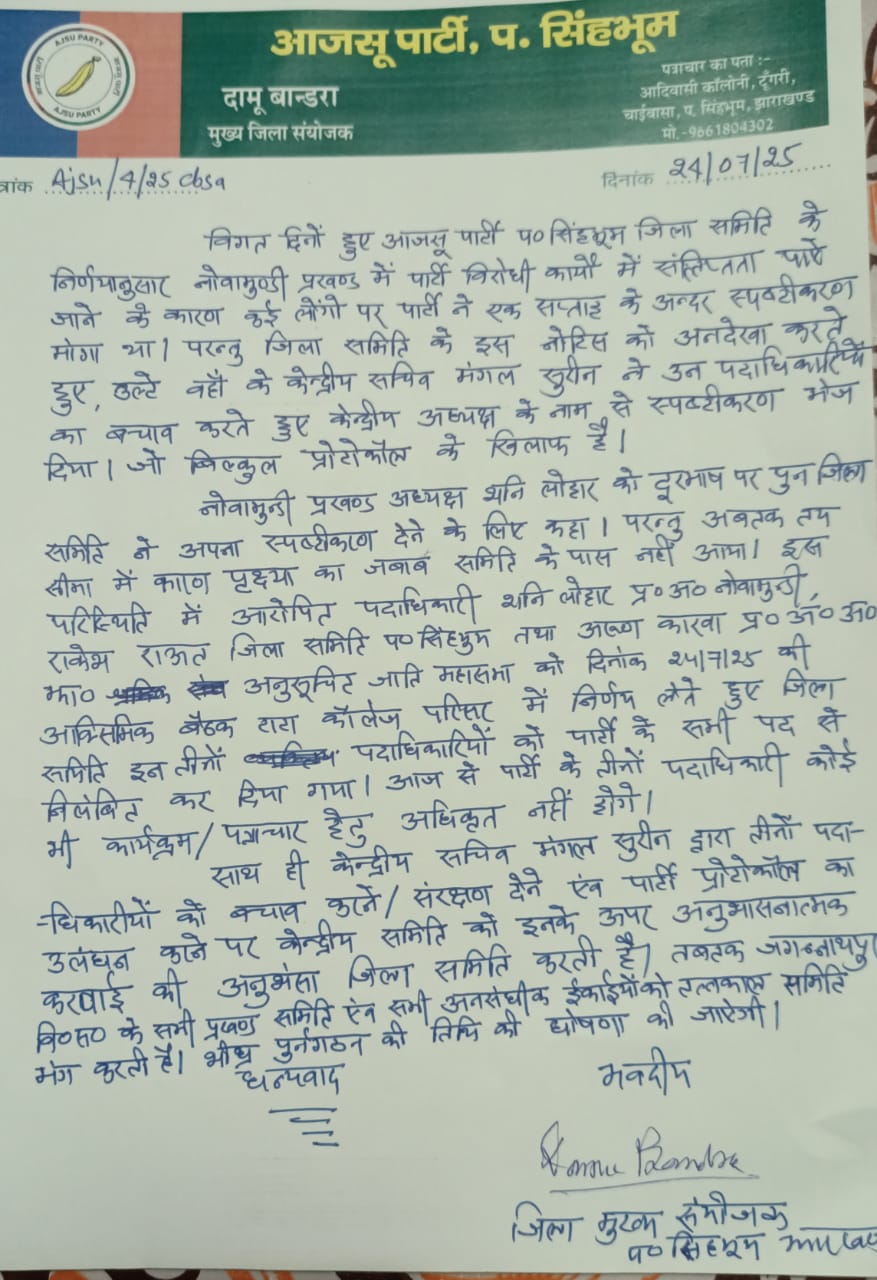 AJSU PARTY
आजसू पार्टी
AJSU PARTY
आजसू पार्टी, प. सिंहभूम
दामू बान्डरा
मुख्य जिला संयोजक
पत्राचार का पता :-
आदिवासी कॉलोनी, टुँगरी,
चाईबासा, प. सिंहभूम, झारखण्ड
मो.-9661804302
त्रांक Ajsu/4/25 cbsa
दिनांक 24/07/25
विगत दिनों हुए आजसू पार्टी प० सिंहभूम जिला समिति के
निर्णयानुसार नोवामुण्डी प्रखण्ड में पार्टी विरोधी कार्यों में संलिप्तता पाऐ
जाने के कारण कई लोंगो पर पार्टी ने एक सप्ताह के अन्दर स्पष्टीकरण
मांगा था। परन्तु जिला समिति के इस नोटिस को अनदेखा करते
हुए, उल्टे वहाँ के केन्द्रीय सचिव मंगल सुरीन ने उन पदाधिकारियों
का बचाव करते हुए केन्द्रीय अध्यक्ष के नाम से स्पष्टीकरण भेज
दिया। जो बिल्कुल प्रोटोकॉल के खिलाफ है।
नोवामुन्डी प्रखण्ड अध्यक्ष शनि लोहार को दूरभाष पर पुन जिला
समिति ने अपना स्पष्टीकरण देने के लिए कहा। परन्तु अबतक तय
सीमा में कारण पृक्ष्या का जबाब समिति के पास नहीं आया। इस
परिस्थिति में आरोपित पदाधिकारी शनि लोहार प्र० अ० नोवामुन्डी,
राकेश राऊत जिला समिति प० सिंहभुम तथा कारवा प्र० अ० अ०
झा० अनुसूचित जाति महासभा को दिनांक 24/7/25 की
आक्सिमिक बैठक टाटा कॉलेज परिसर में निर्णय लेते हुए जिला
समिति इन तीनों पदाधिकारियों को पार्टी के सभी पद से
निलंबित कर दिया गया। आज से पार्टी के तीनों पदाधिकारी कोई
भी कार्यक्रम/पत्राचार हेतु अधिकृत नहीं होगे।
साथ ही केन्द्रीय सचिव मंगल सुरीन द्वारा तीनों पदा-
-धिकारीयों को बचाव करने/संरक्षण देने एंव पार्टी प्रोटोकॉल का
उलंघन करने पर केन्द्रीय समिति को इनके ऊपर अनुशासनात्मक
करवाई की अनुशंसा जिला समिति करती है। तबतक जगन्नाथपुर
वि०स० के सभी प्रखण्ड समिति एंव सभी अनसंघीक ईकाईयों को तत्तकाल समिति
भंग करती है। शीघ्र पुर्नगठन की तिथि की घोषणा की जाऐगी।
धन्यवाद
भवदीय
Damu Bandra
जिला मुख्य संयोजक
प० सिंहभुम